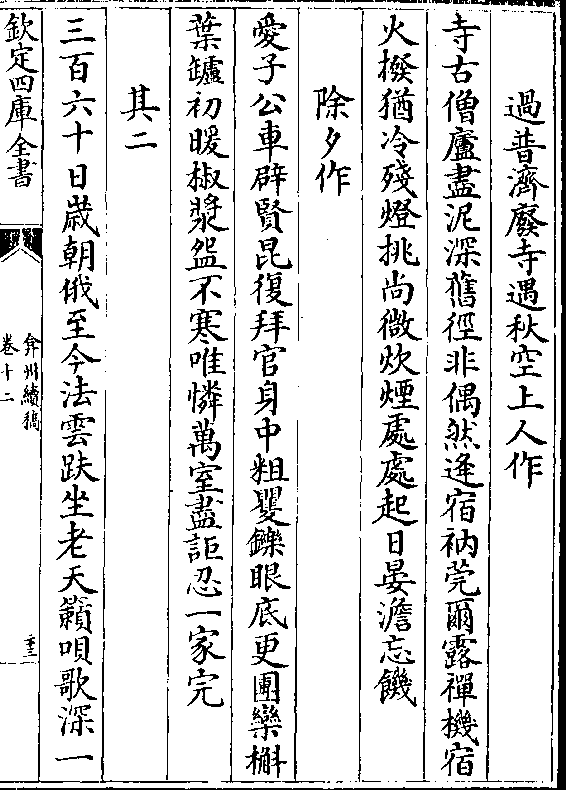 過普濟廢寺遇秋空上人作
寺古僧廬盡泥深舊徑非偶然逢宿衲莞爾露禪機宿
火撥猶冷殘燈挑尚微炊煙處處起日晏澹忘饑
除夕作
愛子公車辟賢昆復拜官身中粗矍鑠眼底更團欒槲
葉罏初暖椒漿盌不寒唯憐萬室盡詎忍一家完
其二
三百六十日歳朝俄至今法雲趺坐老天籟唄歌深一
欽定四庫全書
弇州續稿
卷十二